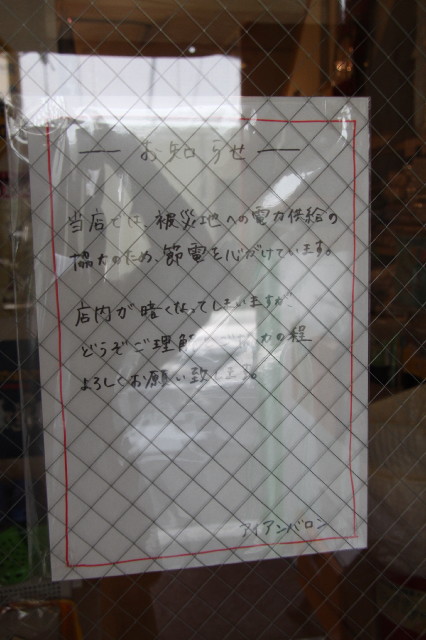 お知らせ
当店では、被災地への電力供給の
協力のため、節電を心がけています。
店内が暗くなってしまいますが、
どうぞご理解 力の程
よろしくお願い致します。
アイアンバロン